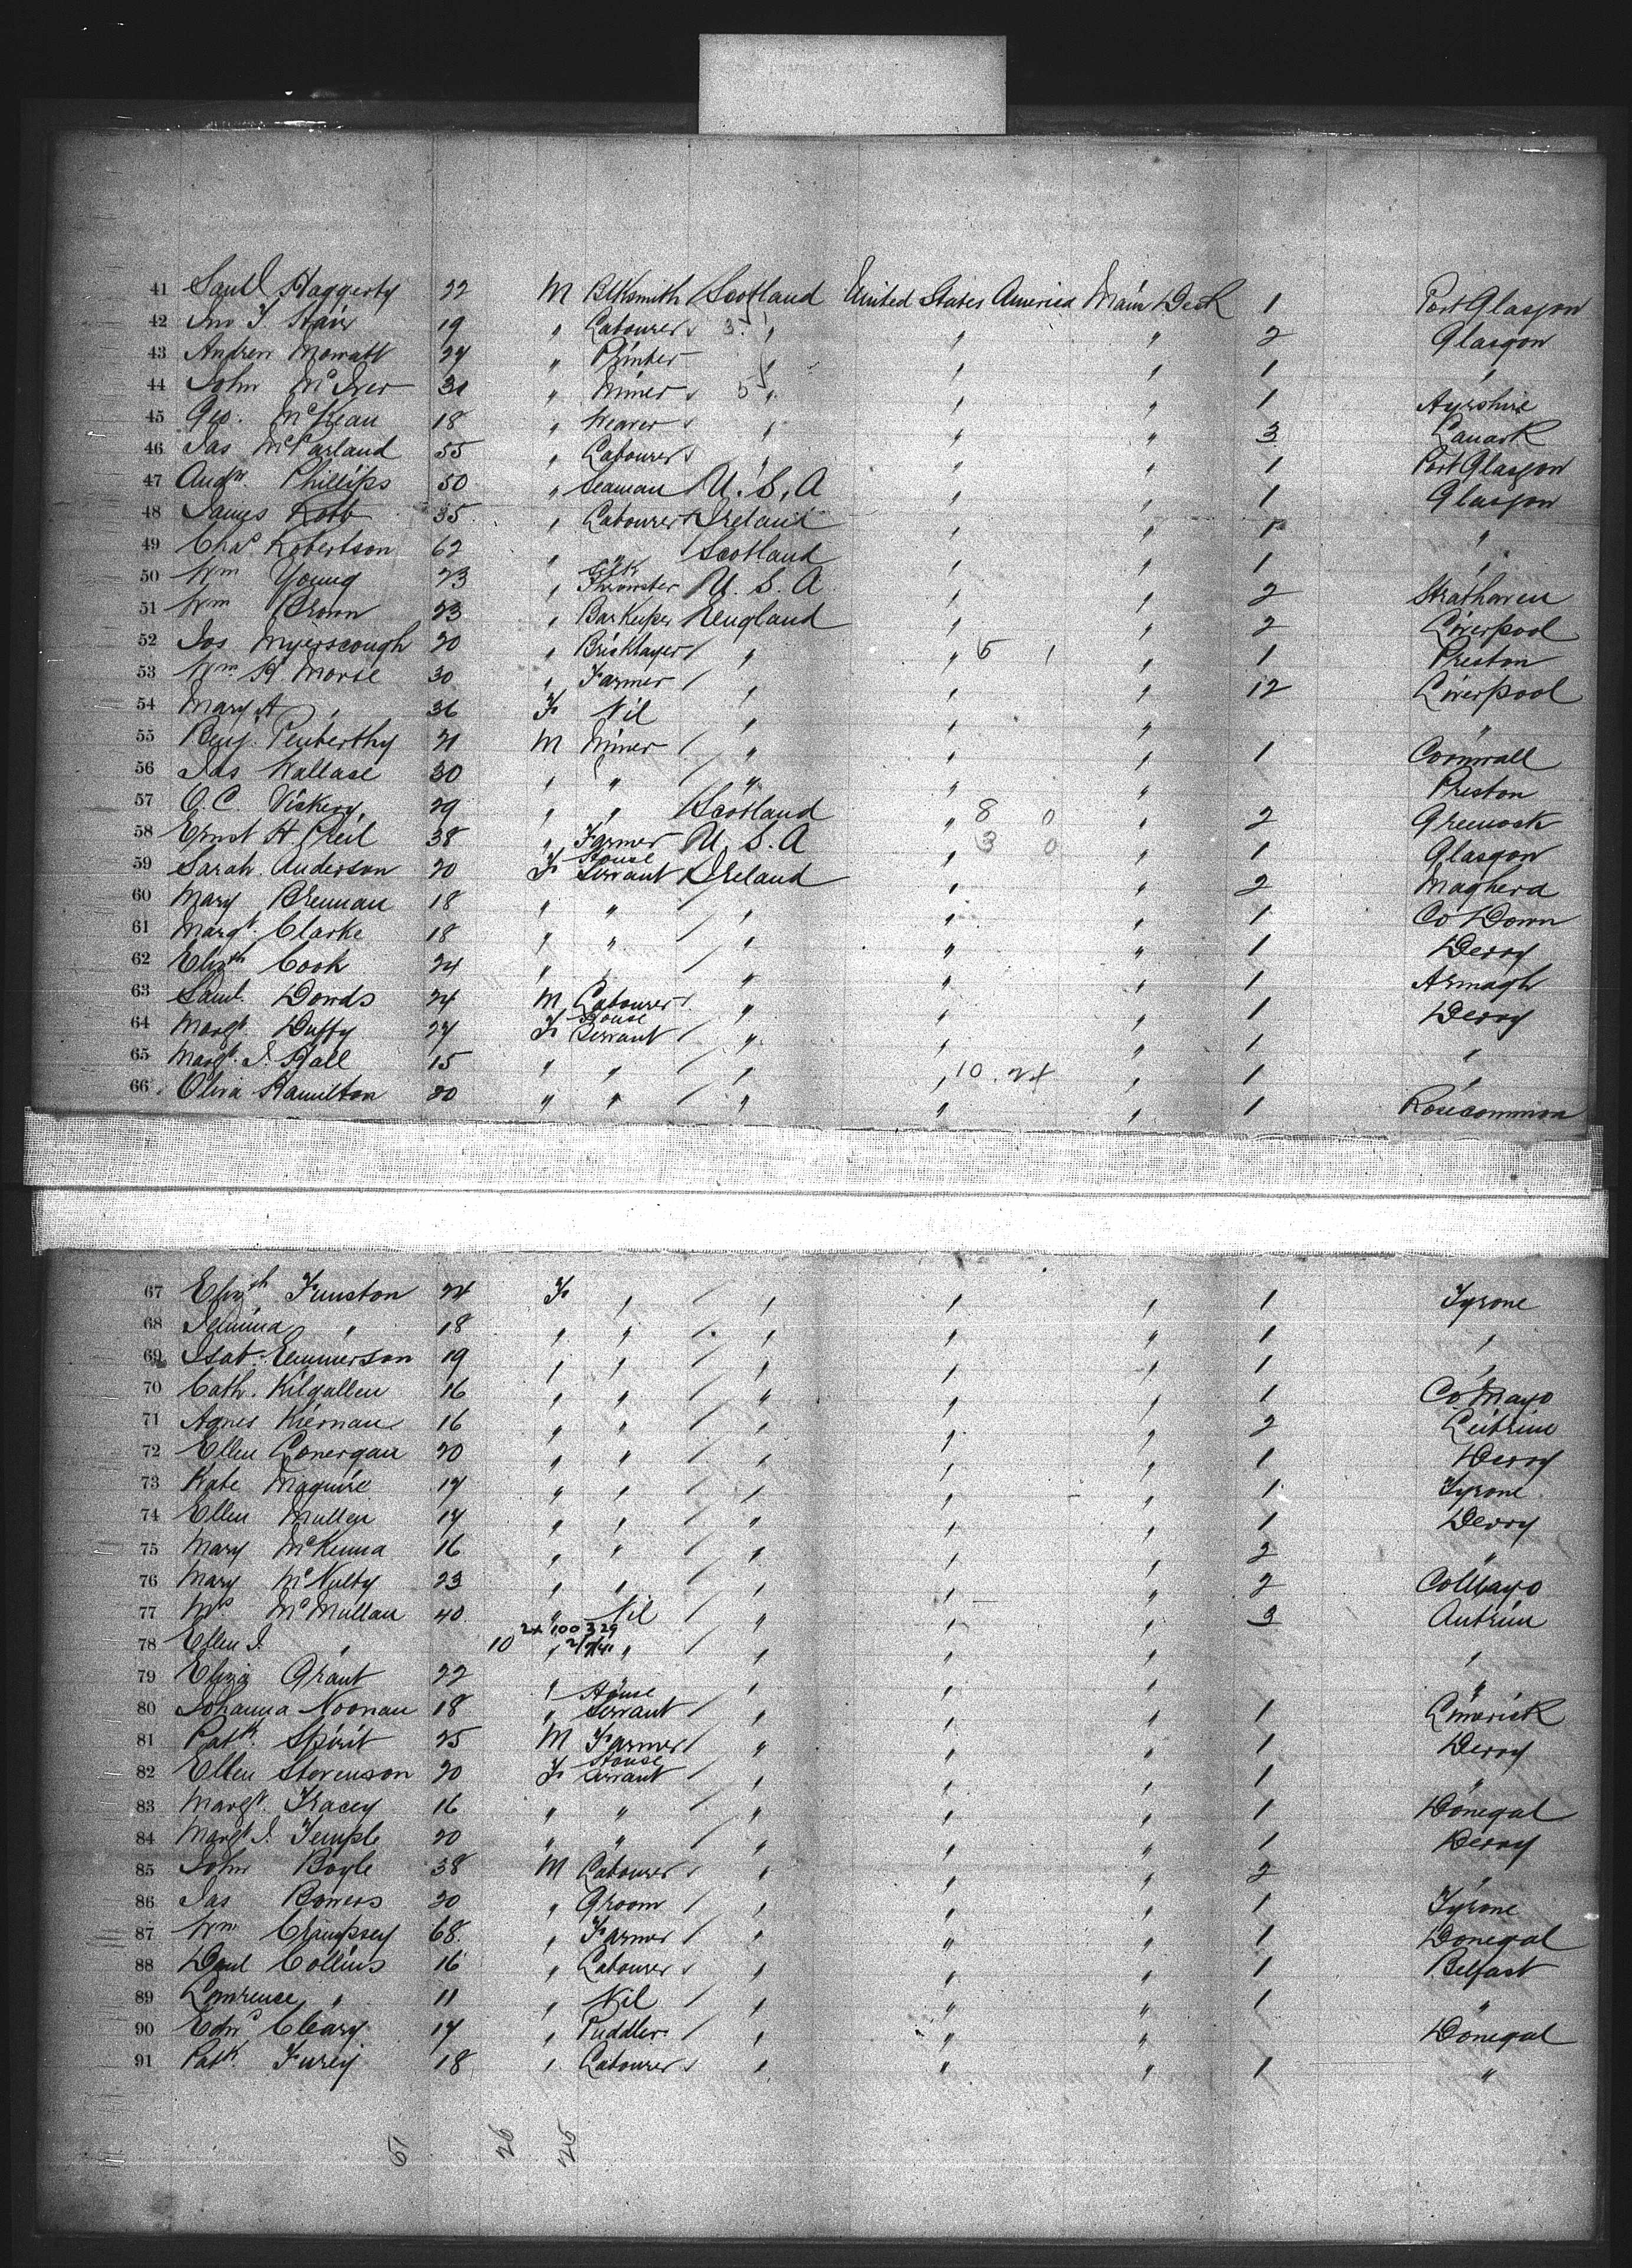 41 Saml Haggerty 22 M Blksmith Scotland United States America Main Deck 1 Port Glasgow
42 Jno T. 19 " Labourer 3 " " " 2 Glasgow
43 Andrew Mowatt 24 " " " " 1 "
44 John McIver 31 " Miner 5 " " " 1 Ayrshire
45 Geo. McKean 18 " Weaver " " " 3 Lanark
46 Jas McParland 55 " Labourer " " " 1 Port Glasgow
47 Andw. Phillips 50 " Seaman U.S.A " " 1 Glasgow
48 James Robb 35 " Labourer Ireland " " 1 "
49 Chas Robertson 62 " " Scotland " " 1 "
50 Wm Young 23 " Silk Throwster U.S.A " " 2 Strathaven
51 Wm Brown 23 " Bar Keeper England " " 2 Liverpool
52 Jos Myerscough 20 " Bricklayer " " 5 1 " 1 Preston
53 Wm. H. Morse 30 " Farmer " " " 12 Liverpool
54 Mary A " 36 F Nil " " " "
55 Benj. Penberthy 21 M Miner " " " 1 Cornwall
56 Jas Wallase 30 " " " " " Preston
57 O.C. Vickery 29 " " Scotland " 8 0 " 2 Greenock
58 Ernst H 38 " Farmer U.S.A " 3 0 " 1 Glasgow
59 Sarah Anderson 20 F House Servant Ireland " " 2 Maghera
60 Mary Brennan 18 " " " " " 1 Co Down
61 Margt. Clarke 18 " " " " " 1 Derry
62 Elizth Cook 24 " " " " " 1 Armagh
63 Saml. Dowds 24 M Labourer " " " 1 Derry
64 Margt Duffy 24 F House Servant " " " 1 "
65 Margt. J. Hall 15 " " " " 10. 24 " 1 "
66 Oliva Hamilton 20 " " " " " 1 Roscommon
67 Elizth Funston 24 F " " " " 1 Tyrone
68 Jemima " 18 " " " " " 1 "
69 Isab. Emmerson 19 " " " " " 1 "
70 Cath. Kilgallen 16 " " " " " 1 Co Mayo
71 Agnes Kiernan 16 " " " " " 2 Leitrim
72 Ellen Lonergan 20 " " " " " 1 Derry
73 Kate Maguire 17 " " " " " 1 Tyrone
74 Ellen Mullen 17 " " " " " 1 Derry
75 Mary McKenna 16 " " " " " 2 "
76 Mary McNulty 23 " " " " " 2 Co Mayo
77 Mrs McMullan 40 " Nil " " " 3 Antrim
2x 100 329
78 Ellen J. " 10 " " " " " "
79 Eliza Grant 22 " " " " "
80 Johanna Noonan 18 " House Servant " " " 1 Limerick
81 Patk. Spirit 25 M Farmer " " " 1 Derry
82 Ellen Stevenson 20 F House Servant " " " 1 "
83 Margt. Tracey 16 " " " " " 1 Donegal
84 Margt J. Temple 20 " " " " " 1 Derry
85 John Boyle 38 M Labourer " " " 2 "
86 Jas Bowers 20 " Groom " " " 1 Tyrone
87 Wm Crampsey 68 " Farmer " " " 1 Donegal
88 Danl Collins 16 " Labourer " " " 1 Belfast
89 Lawrence " 11 " Nil " " " 1 "
90 Edwd Cleary 17 " Puddler " " " Donegal
91 Patk Furey 18 " Labourer " " " 1 "
26 26